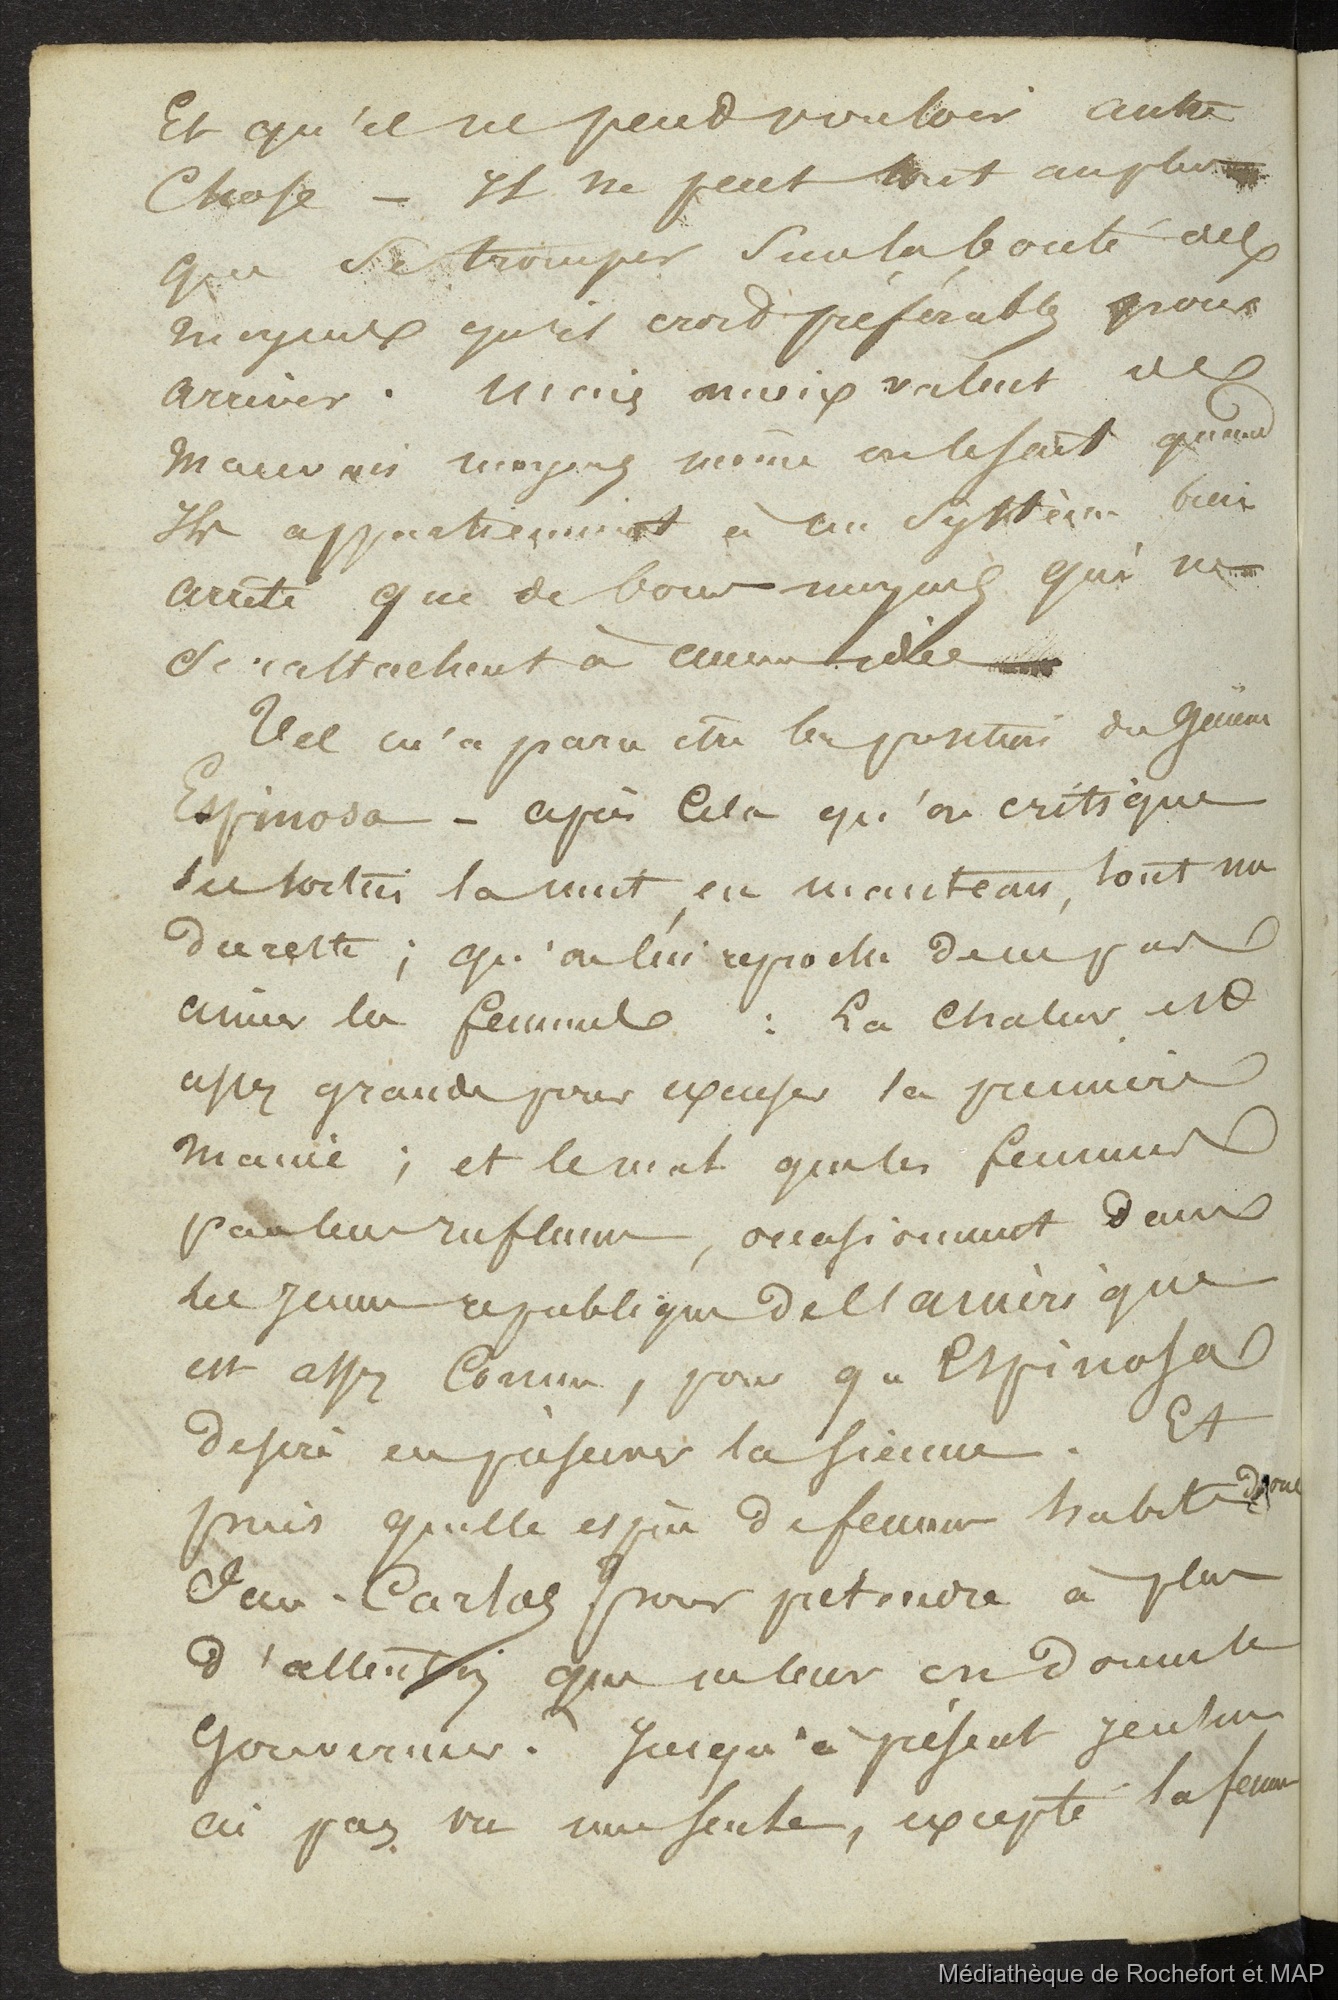 Et qu'il ne peut vouloir autre
Chose – Il ne peut tout au plus
que se tromper sur la bonté des
moyens qu'il croit préférables pour
arriver. Mais mieux valent des
mauvais moyens même on le sait quand
Ils appartiennent à un système bien
arrêté que de bons moyens qui ne
se rattachent à aucune idée
Tel m'a paru être la position du
Espinosa – après cela qu'on critique
ses sorties la nuit, en manteau, tout nu
du reste ; qu'on lui reproche de ne pas
aimer les femmes : La chaleur est
assez grande pour excuser la première
manie ; et le mal que les femmes
par leur influence, occasionnent dans
les jeunes republiques de l'amérique
est assez connu, pour que Espinosa
desire en préserver la sienne. Et
puis quelle espèce de femmes habite donc
San-Carlos pour prétendre à plus
d'attention que ne leur en donne le
Gouverneur. Jusqu'à présent je n'en
ai pas vu une seule, excepté la femme
Médiathèque de Rochefort et MAP